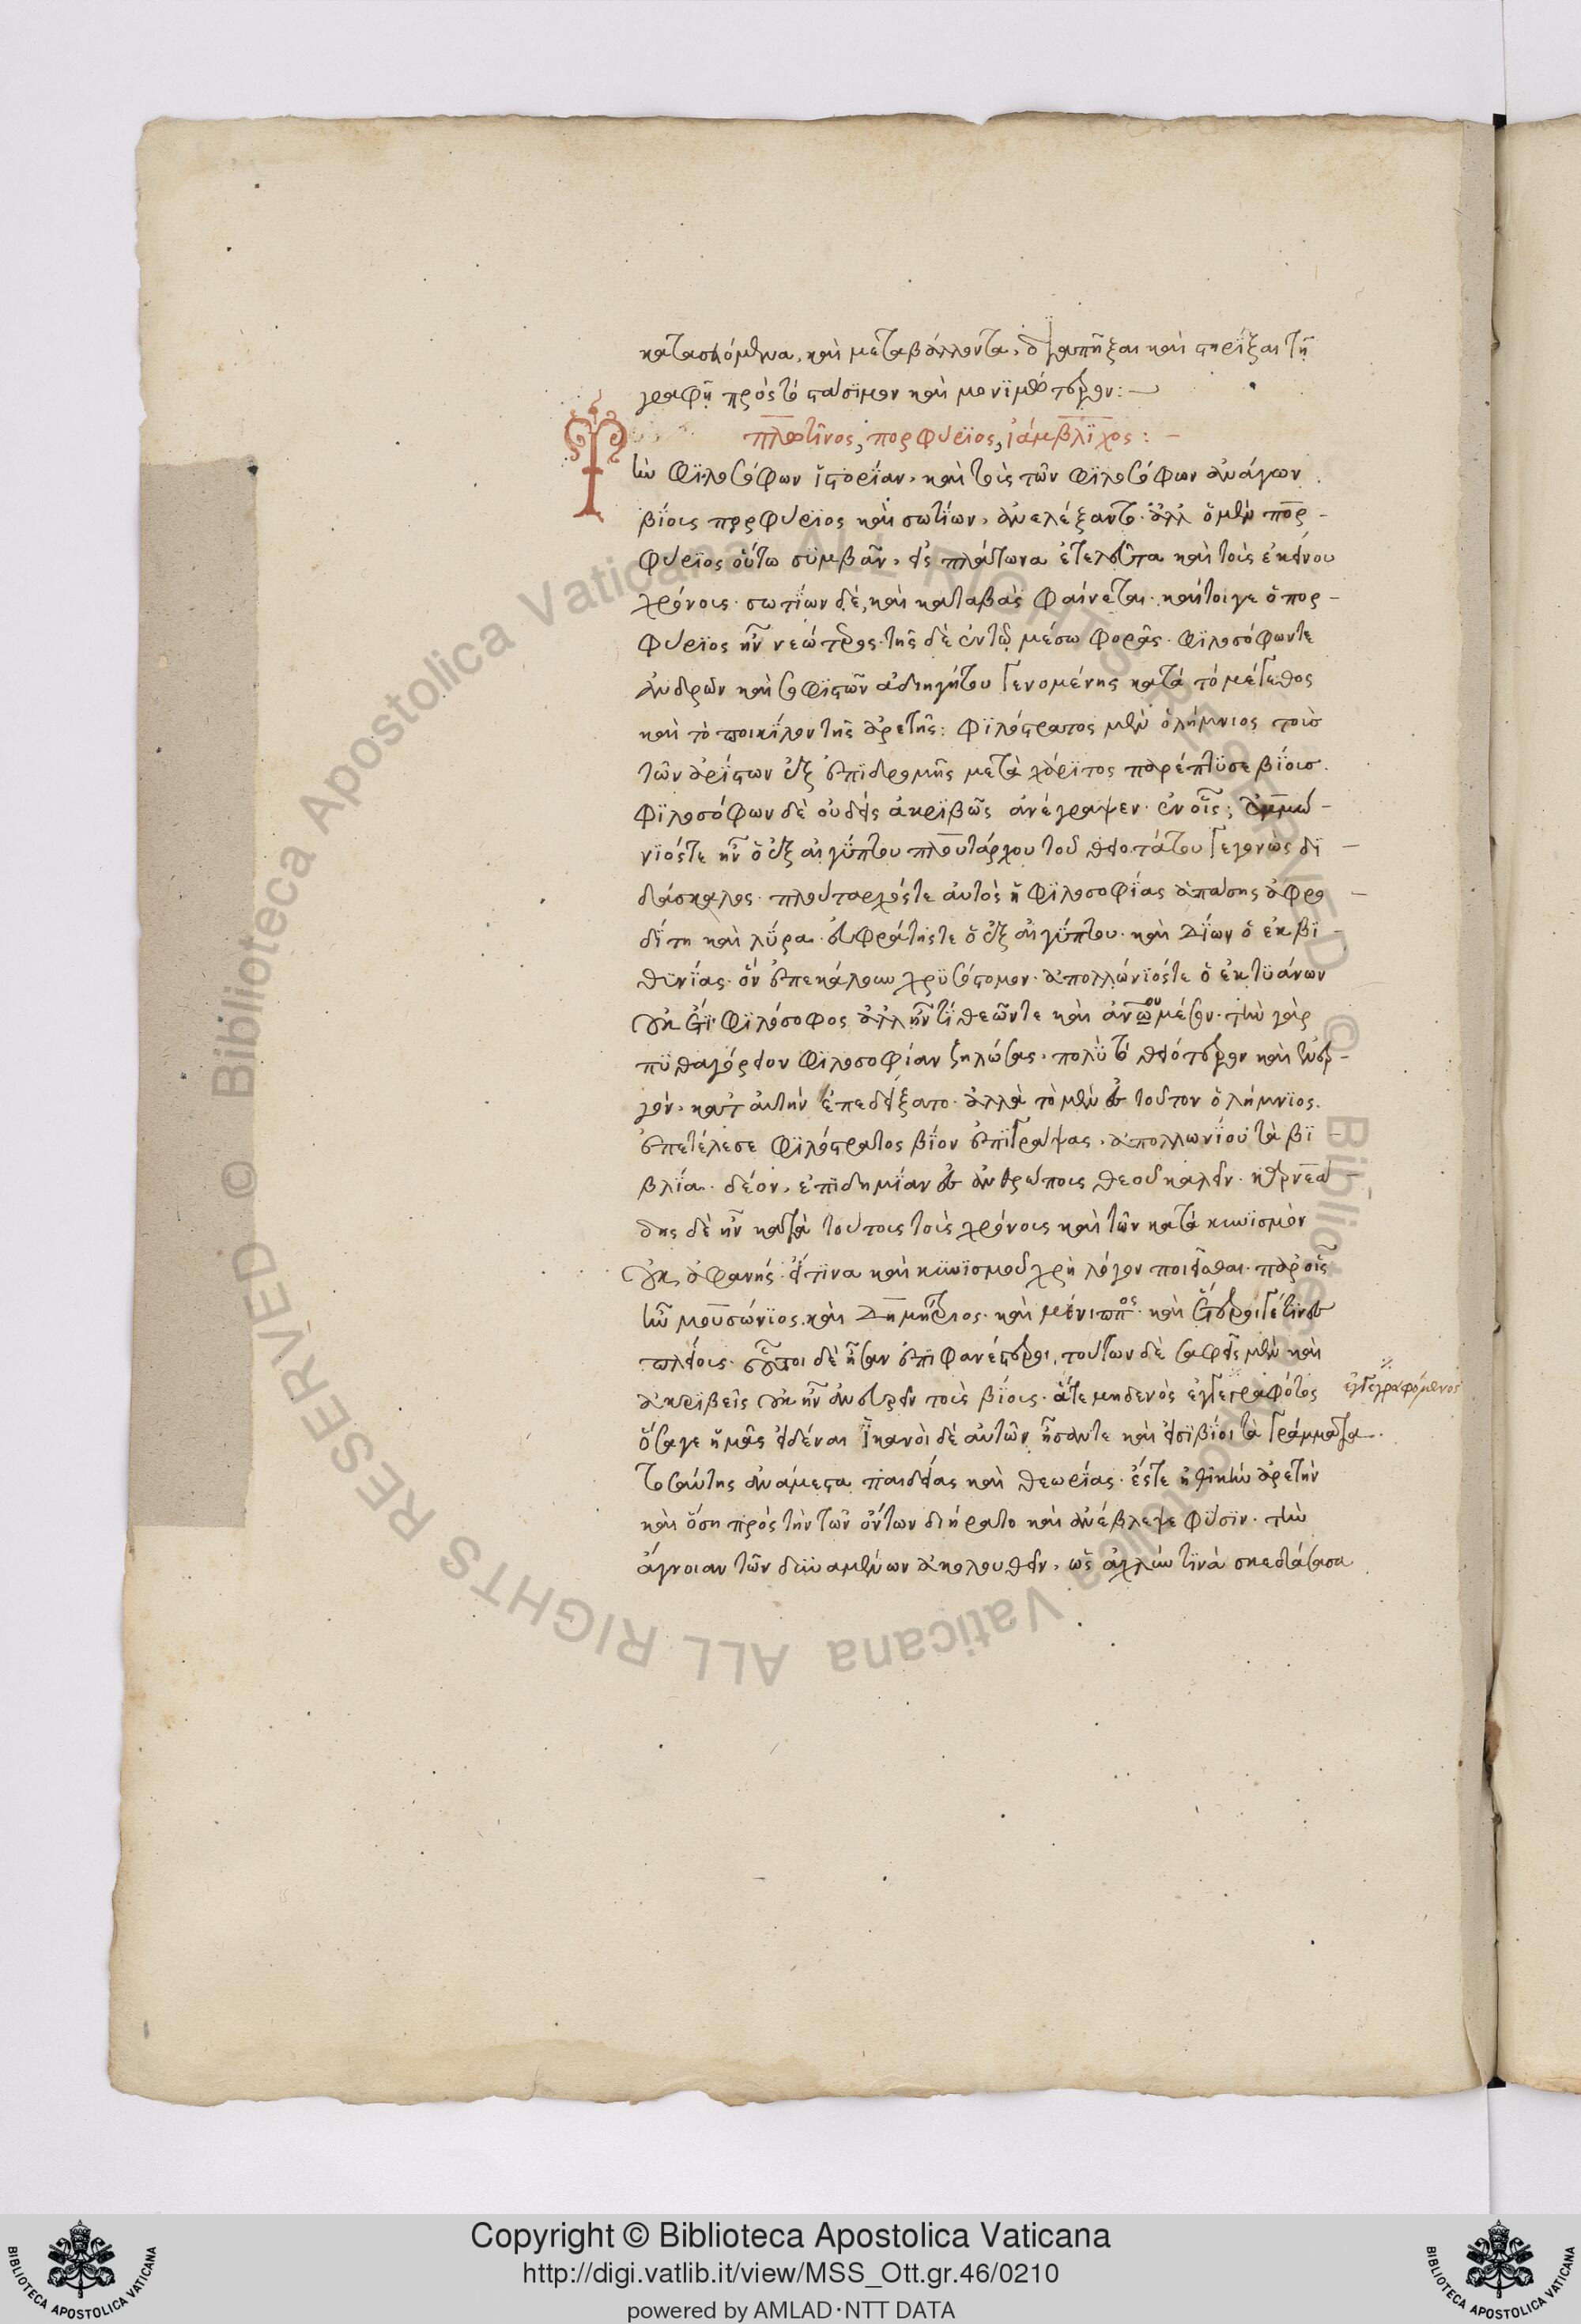 κατασκόμενα, καὶ μεταβάλλοντα, διαπῆξαι καὶ στηρίξαι τῇ
γραφῇ πρὸς τὸ στάσϊμον καὶ μονϊμώτερον:—
πλωτῖνος, πορφύρϊος, ϊάμβλϊχος:—
Τὴν φϊλοσόφων ἱστορΐαν, καὶ τοὺς τῶν φϊλοσόφων ἀνδρῶν
βΐους πορφύρϊος καὶ σωτίων, ἀνελέξαντο. ἀλλ' ὁ μὲν πορ-
φύρϊος οὕτω συμβὰν, εἰς πλάτωνα ἐτελεύτα καὶ τοὺς ἐκείνου
χρόνους. σωτΐων δὲ, καὶ καταβὰς φαίνεται. καίτοιγε ὁ πορ-
φύρϊος ἦν νεώτερος. τῆς δὲ ἐν τῷ μέσω φορᾶς. φϊλοσόφων τε
ἀνδρῶν καὶ σοφϊστῶν ἀδιηγήτου γενομένης κατὰ τὸ μέγεθος
καὶ τὸ ποικΐλον τῆς ἀρετῆς: φϊλόστρατος μὲν ὁ λήμνιος τοὺσ
τῶν ἀρΐστων ἐξ ἐπϊδρομῆς μετὰ χάρϊτος παρέπτϋσε βΐουσ.
φϊλοσόφων δὲ οὐδεὶς ἀκρϊβῶς ἀνέγραψεν. ἐν οἷς, ἀμμώ-
νϊός τε ἦν ὁ ἐξ αἰγΰπτου πλουτάρχου τοῦ θειοτάτου γεγονὼς δϊ-
δάσκαλος. πλούταρχός τε αὐτὸς ἡ φϊλοσοφΐας ἁπάσης ἀφρο-
δΐτη καὶ λΰρα. εὐφράτης τε ὁ ἐξ αἰγΰπτου. καὶ Δΐων ὁ ἐκ βϊ-
θϋνΐας. ὃν ἐπεκάλουν χρϋσόστομον. ἀπολλώνϊός τε ὁ ἐκ τϋάνων
οὐκ ἔτϊ φϊλόσοφος ἀλλ' ἦν τϊ θεῶν τε καὶ ἀνθρώπου μέσον. τὴν γὰρ
πϋθαγόρειον φϊλοσοφίαν ζηλώσας, πολὺ τὸ θειότερον καὶ ἐνερ-
γὸν, κατ' αὐτὴν ἐπεδείξατο. ἀλλὰ τὸ μὲν ἐς τοῦτον ὁ λήμνϊος
ἐπετέλεσε φϊλόστρατος βΐον ἐπϊγράψας, ἀπολλωνΐου τὰ βϊ-
βλΐα. δέον, ἐπιδημΐαν ἐς ἀνθρώπους θεοῦ καλεῖν. καρνεά-
δης δὲ ἦν κατὰ τούτους τοὺς χρόνους καὶ τῶν κατὰ κυνϊσμὸν
οὐκ ἀφανής. εἴ τϊνα καὶ κυνϊσμοῦ χρὴ λόγον ποιεῖσθαι. παρ' οἷς
ἦν μουσώνϊος. καὶ Δημήτριος. καὶ μένιππος. καὶ ἕτεροι γέ τινες
πλείους. οὗτοι δὲ ἦσαν ἐπϊφανέστεροι. τούτων δὲ σαφεῖς μὲν καὶ
ἀκρϊβεῖς οὐκ ἦν ἀνευρεῖν τοὺς βΐους. ἅτε μηδενὸς ἐγγεγραφότος
ἐγγεγραφόμενος
ὅσα γε ἡμᾶς εἰδέναι ἱκανοὶ δὲ αὐτῶν ἦσάν τε καὶ εἰσϊ βΐοι τὰ γράμματα.
τοσαύτης ἀνάμεστα παιδείας καὶ θεωρΐας. ἔς τε ἠθικὴν ἀρετὴν
καὶ ὅση πρὸς τὴν τῶν ὄντων διήρατο καὶ ἀνέβλεψε φύσϊν. τὴν
ἄγνοιαν τῶν δυναμένων ἀκολουθεῖν, ὡς ἀχλύν τϊνὰ σκεδάσασα
Copyright © Biblioteca Apostolica Vaticana
http://digi.vatlib.it/view/MSS_Ott.gr.46/0210
powered by AMLAD·NTT DATA